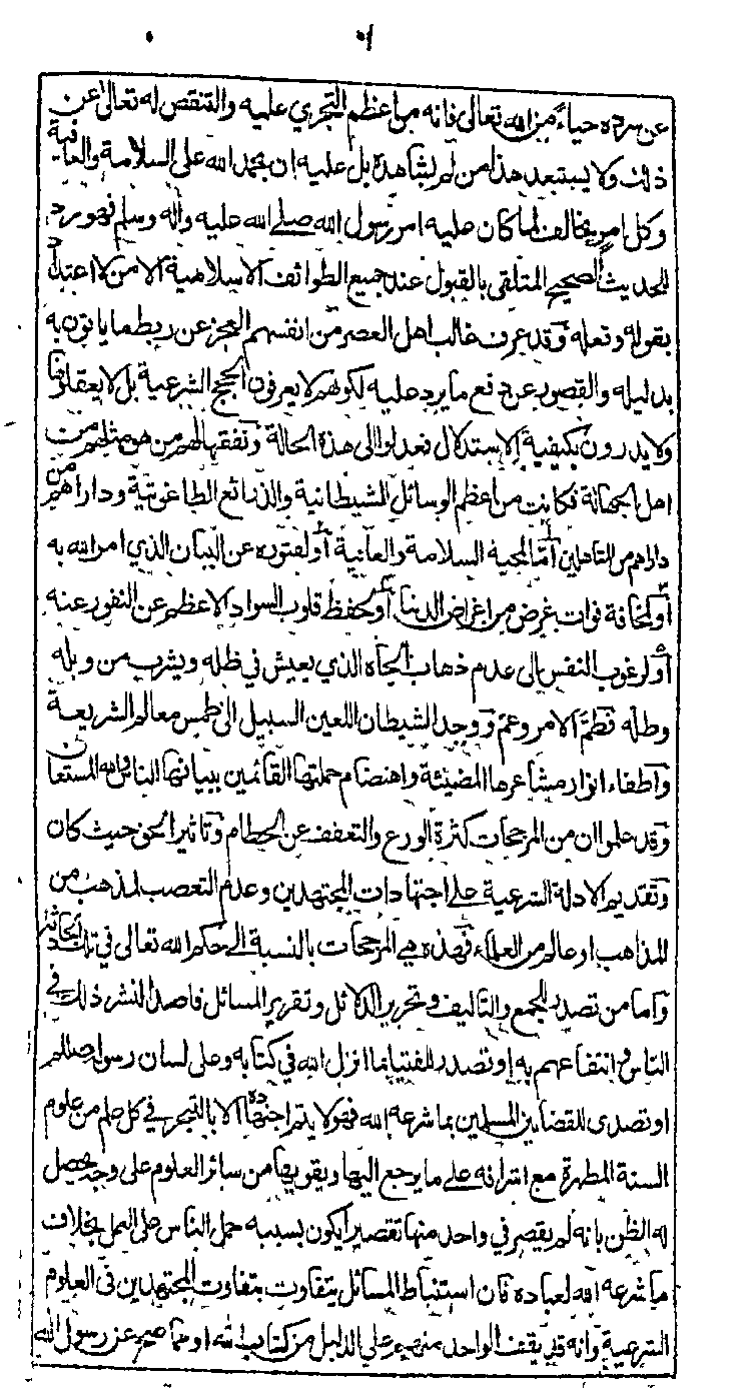 ٥١
عن سرده حياءً من الله تعالى فانه من اعظم التجري عليه والتنقص له تعالى عن
ذلك ولا يستبعد هذا من لم يشاهده بل عليه ان يحمد الله على السلامة والعافية
وكل امر يخالف لما كان عليه امر رسول الله صلى الله عليه واله وسلم فهو رد
للحديث الصحيح المتلقى بالقبول عند جميع الطوائف الاسلامية الا من لا اعتداد
بقوله وفعله وقد عرف غالب اهل العصر من انفسهم العجز عن ربط ما ياتون به
بدليله والقصور عن دفع ما يرد عليه لكونهم لا يعرفون الحجج الشرعية بل لا يعقلونها
ولا يدرون بكيفية الاستدلال فعدلوا الى هذه الحالة ونفقها لهم من هو مثلهم من
اهل الجهالة فكانت من اعظم الوسائل الشيطانية والذرائع الطاغوتية وداراهم من
داراهم من التاهلين امّا لمحبة السلامة والعافية أو لفتوره عن البيان الذي امر الله به
أو لمخافة فوات غرض من اغراض الدنيا أو حفظ قلوب السواد الاعظم عن النفور عنه
أو لرغوب النفس الى عدم ذهاب الجاه الذي يعيش في ظله ويشرب من وبله
وطله فطمّ الامر وعمّ ووجد الشيطان اللعين السبيل الى طمس معالم الشريعة
واطفاء انوار مشاعرها المضيئة واهتضام حملتها القائمين ببيانها الناس والله المستعان
وقد علم ان من المرجحات كثرة الورع والتعفف عن الحطام وتاثير الحق حيث كان
وتقديم الادلة الشرعية على اجتهادات المجتهدين وعدم التعصب لمذهب من
المذاهب او عالم من العلماء فهذه هي المرجحات بالنسبة الى حكم الله تعالى في تلك الحادثة
واما من تصدر للجمع والتاليف وتحرير الدلائل وتقرير المسائل قاصدا لنشر ذلك في
الناس وانتفاعهم به او تصدر للفتيا بما انزل الله في كتابه وعلى لسان رسوله صللم
او تصدى للقضاء بين المسلمين بما شرعه الله فهو لا يتم اجتهاده الا بالتبحر في كل علم من علوم
السنة المطهرة مع اشرافه على ما يرجع اليها ويقويها من سائر العلوم على وجه يحصل
له الظن بانه لم يقصر في واحد منها تقصيرا يكون بسببه حمل الناس على العمل بخلاف
ما شرعه الله لعباده فان استنباط المسائل يتفاوت بتفاوت المجتهدين في العلوم
الشرعية وانه قد يقف الواحد منهم على الدليل من كتاب الله او مما صح عن رسول الله